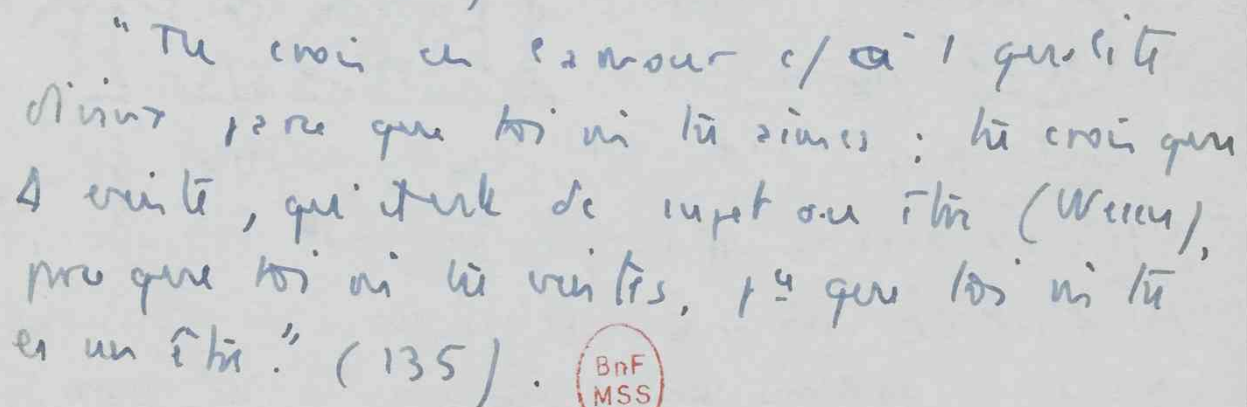 "Tu crois en l'amour c/ à 1 qualité
divine parce que toi m tu aimes ; tu crois que
Δ existe, sujet ou être (Wesen),
parce que toi m tu existes, pce que toi m tu
es un être." (135).
BnF
MSS